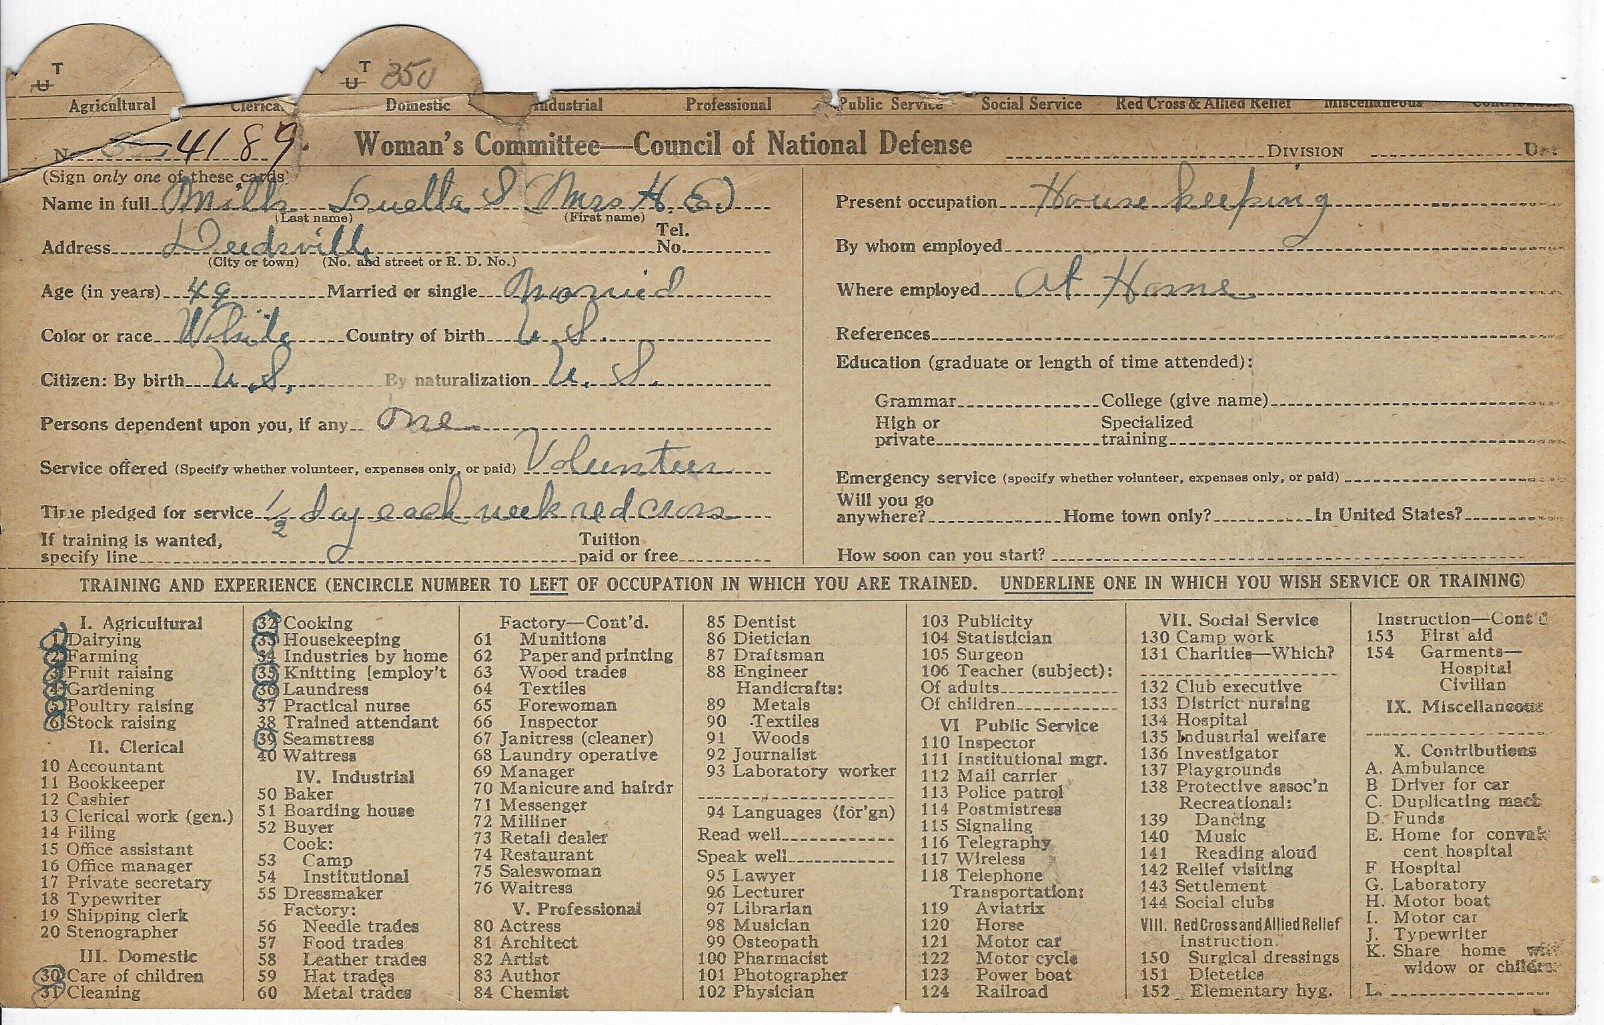 U T
U T 350
Agricultural Clerical Domestic Industrial Professional Public Service Social Service Red Cross & Allied Relief Miscellaneous
No. 4189 Woman's Committee—Council of National Defense DIVISION
(Sign only one of these cards)
Name in full Mills Luella S (Mrs H. E.)
(Last name) (First name)
Address Deedsville Tel. No.
(City or town) (No. and street or R. D. No.)
Age (in years) 49 Married or single Married
Color or race White Country of birth U. S.
Citizen: By birth U. S. By naturalization U. S.
Persons dependent upon you, if any one
Service offered (Specify whether volunteer, expenses only, or paid) Volunteer
Time pledged for service 1/2 day each week red cross
If training is wanted, specify line Tuition paid or free
Present occupation House keeping
By whom employed
Where employed At Home
References
Education (graduate or length of time attended):
Grammar College (give name)
High or private Specialized training
Emergency service (specify whether volunteer, expenses only, or paid)
Will you go anywhere? Home town only? In United States?
How soon can you start?
TRAINING AND EXPERIENCE (ENCIRCLE NUMBER TO LEFT OF OCCUPATION IN WHICH YOU ARE TRAINED. UNDERLINE ONE IN WHICH YOU WISH SERVICE OR TRAINING)
I. Agricultural
1 Dairying
2 Farming
3 Fruit raising
4 Gardening
5 Poultry raising
6 Stock raising
II. Clerical
10 Accountant
11 Bookkeeper
12 Cashier
13 Clerical work (gen.)
14 Filing
15 Office assistant
16 Office manager
17 Private secretary
18 Typewriter
19 Shipping clerk
20 Stenographer
III. Domestic
30 Care of children
31 Cleaning
32 Cooking
33 Housekeeping
34 Industries by home
35 Knitting [employ't
36 Laundress
37 Practical nurse
38 Trained attendant
39 Seamstress
40 Waitress
IV. Industrial
50 Baker
51 Boarding house
52 Buyer
Cook:
53 Camp
54 Institutional
55 Dressmaker
Factory:
56 Needle trades
57 Food trades
58 Leather trades
59 Hat trades
60 Metal trades
Factory—Cont'd.
61 Munitions
62 Paper and printing
63 Wood trades
64 Textiles
65 Forewoman
66 Inspector
67 Janitress (cleaner)
68 Laundry operative
69 Manager
70 Manicure and hairdr
71 Messenger
72 Milliner
73 Retail dealer
74 Restaurant
75 Saleswoman
76 Waitress
V. Professional
80 Actress
81 Architect
82 Artist
83 Author
84 Chemist
85 Dentist
86 Dietician
87 Draftsman
88 Engineer
Handicrafts:
89 Metals
90 Textiles
91 Woods
92 Journalist
93 Laboratory worker
94 Languages (for'gn)
Read well
Speak well
95 Lawyer
96 Lecturer
97 Librarian
98 Musician
99 Osteopath
100 Pharmacist
101 Photographer
102 Physician
103 Publicity
104 Statistician
105 Surgeon
106 Teacher (subject):
Of adults
Of children
VI Public Service
110 Inspector
111 Institutional mgr.
112 Mail carrier
113 Police patrol
114 Postmistress
115 Signaling
116 Telegraphy
117 Wireless
118 Telephone
Transportation:
119 Aviatrix
120 Horse
121 Motor car
122 Motor cycle
123 Power boat
124 Railroad
VII. Social Service
130 Camp work
131 Charities—Which?
132 Club executive
133 District nursing
134 Hospital
135 Industrial welfare
136 Investigator
137 Playgrounds
138 Protective assoc'n
Recreational:
139 Dancing
140 Music
141 Reading aloud
142 Relief visiting
143 Settlement
144 Social clubs
VIII. Red Cross and Allied Relief
Instruction.
150 Surgical dressings
151 Dietetics
152 Elementary hyg.
Instruction—Cont'd
153 First aid
154 Garments—
Hospital
Civilian
IX. Miscellaneous
X. Contributions
A. Ambulance
B Driver for car
C. Duplicating mach
D. Funds
E. Home for convales
cent hospital
F Hospital
G. Laboratory
H. Motor boat
I. Motor car
J. Typewriter
K. Share home with
widow or children
L.